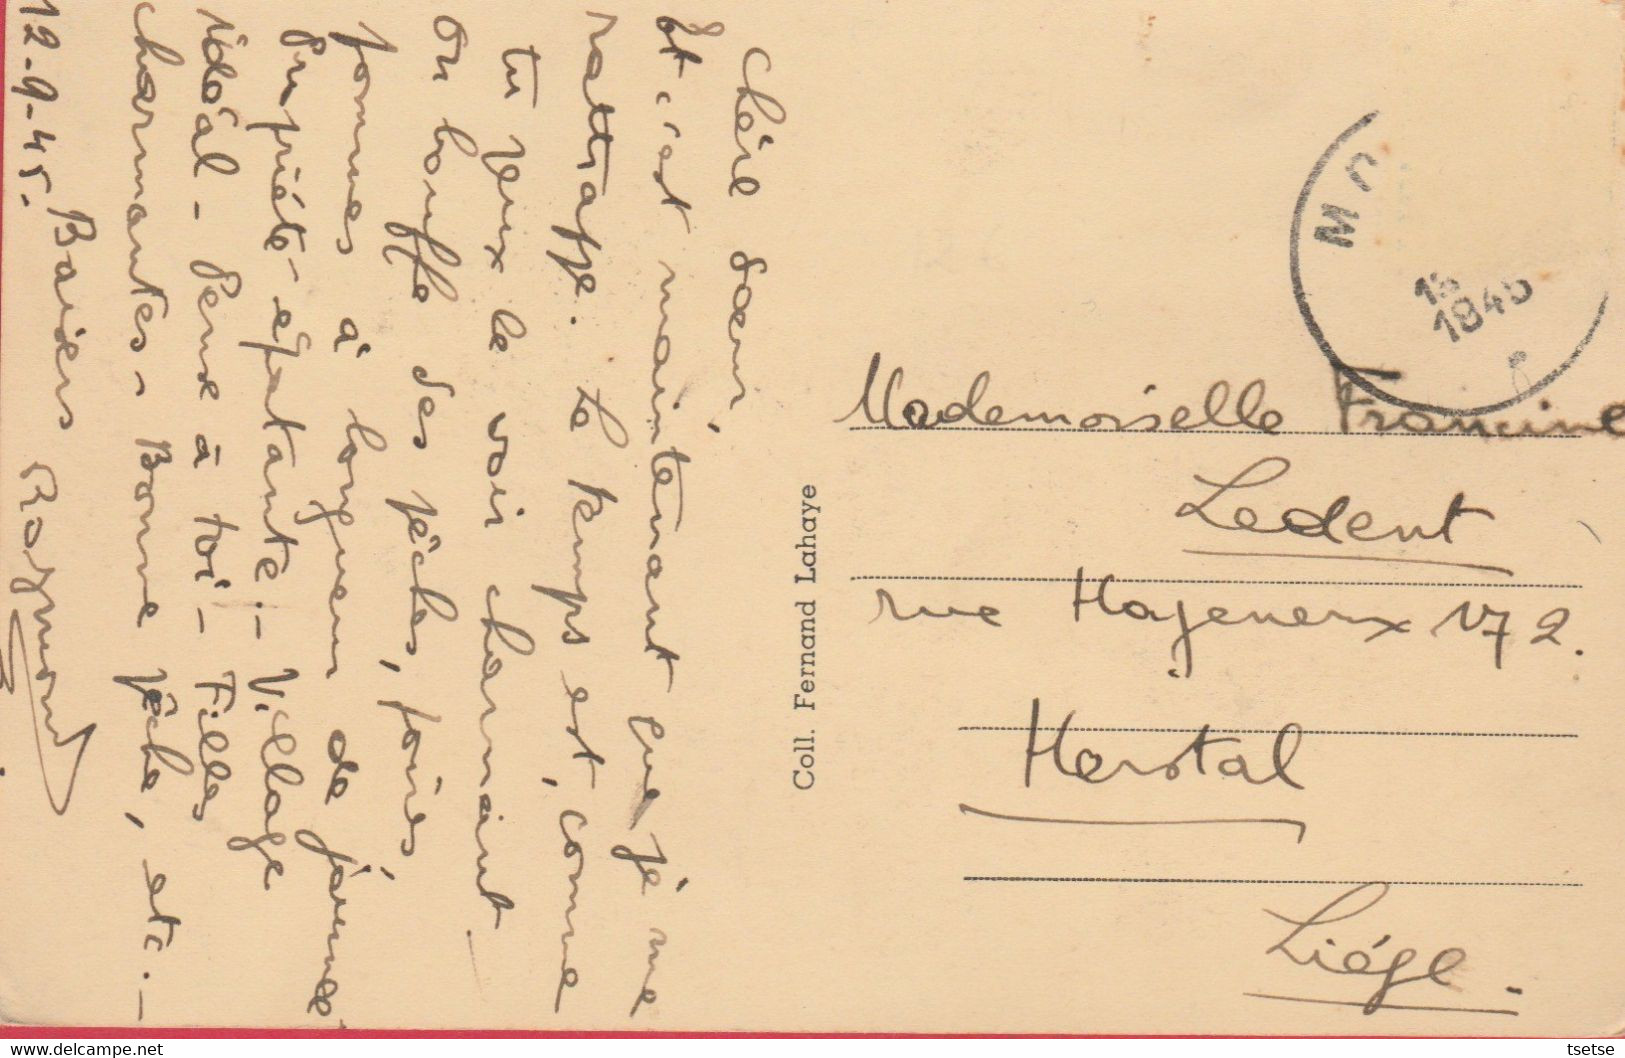 Chère soeur,
Et c'est maintenant que je me
rattrape. Le temps est, comme
tu peux le voir charmant
On bouffe des pêches, poires,
pommes à longueur de journée
Propriété - épatante :- Village
idéal - Pense à toi - Filles
charmantes - Bonne pêche, etc. -
12-9-45. Baisers Raymond
Coll. Fernand Lahaye
M C
15
1945
Mademoiselle Francine
Ledent
rue Hayeneux 172.
Herstal
Liége.
tsetse